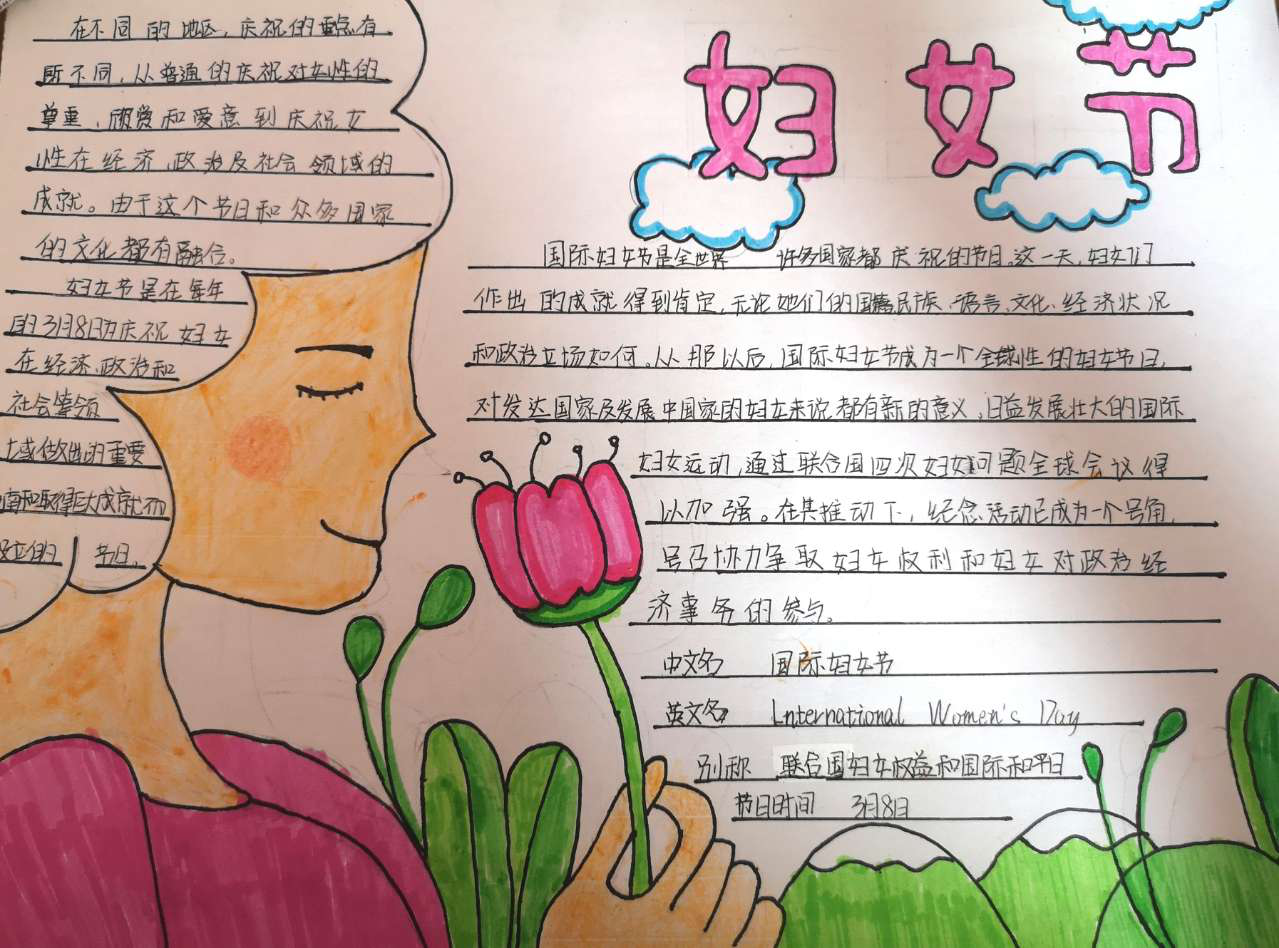 妇女节
在不同的地区,庆祝的重点有
所不同,从普通的庆祝对女性的
尊重、欣赏和爱意到庆祝女
性在经济、政治及社会领域的
成就。由于这个节日和众多国家
的文化都有融合。
妇女节是在每年
的3月8日为庆祝妇女
在经济、政治和
社会等领
域做出的重要
和取得巨大成就而
设立的节日。
国际妇女节是全世界 许多国家都庆祝的节日。这一天,妇女们
作出的成就得到肯定,无论她们的国籍、民族、语言、文化、经济状况
和政治立场如何。从那以后,国际妇女节成为一个全球性的妇女节日,
对发达国家及发展中国家的妇女来说都有新的意义,日益发展壮大的国际
妇女运动,通过联合国四次妇女问题全球会议得
以加强。在其推动下,纪念活动已成为一个号角,
号召协力争取妇女权利和妇女对政治经
济事务的参与。
中文名 国际妇女节
英文名 Lnternational Women's Day
别称 联合国妇女权益和国际和平日
节日时间 3月8日